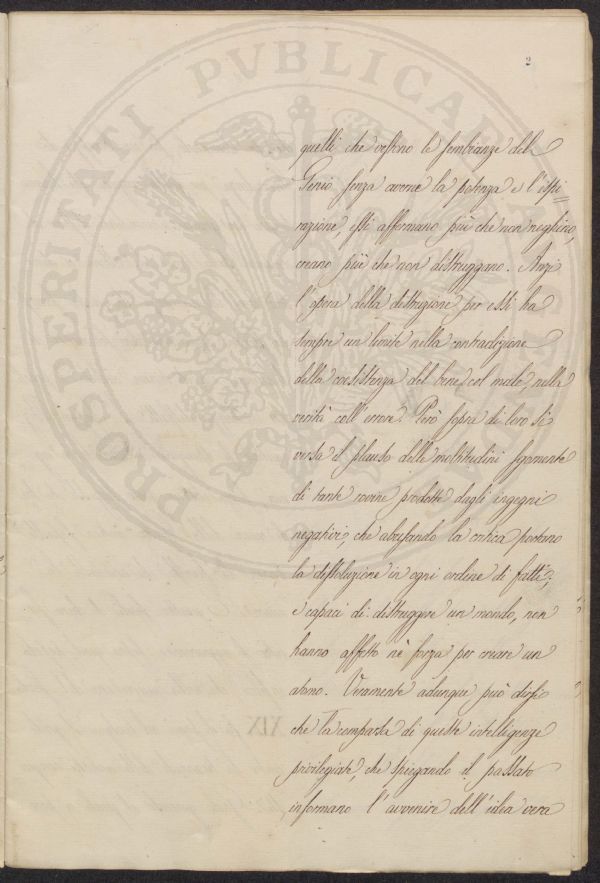 2
quelli che vestono le sembianze del
Genio senza averne la potenza e l'ispi=
razione, essi affermano più che non neghino,
creano più che non distruggano. Anzi
l'opera della distruzione per essi ha
sempre un limite nella contradizione
della coesistenza del bene col male, nella
verità coll'errore. Però sopra di loro si
versa il plauso delle moltitudini sgomente
di tante rovine prodotte dagli ingegni
negativi, che abusando la critica portano
la dissoluzione in ogni ordine di fatti;
e capaci di distruggere un mondo, non
hanno affatto nè forza per creare un
atomo. Veramente adunque può dirsi
che la comparsa di queste intelligenze
privilegiate, che spiegando il passato
informano l'avvenire dell'idea vera
PROSPERITATI PVBLICAE